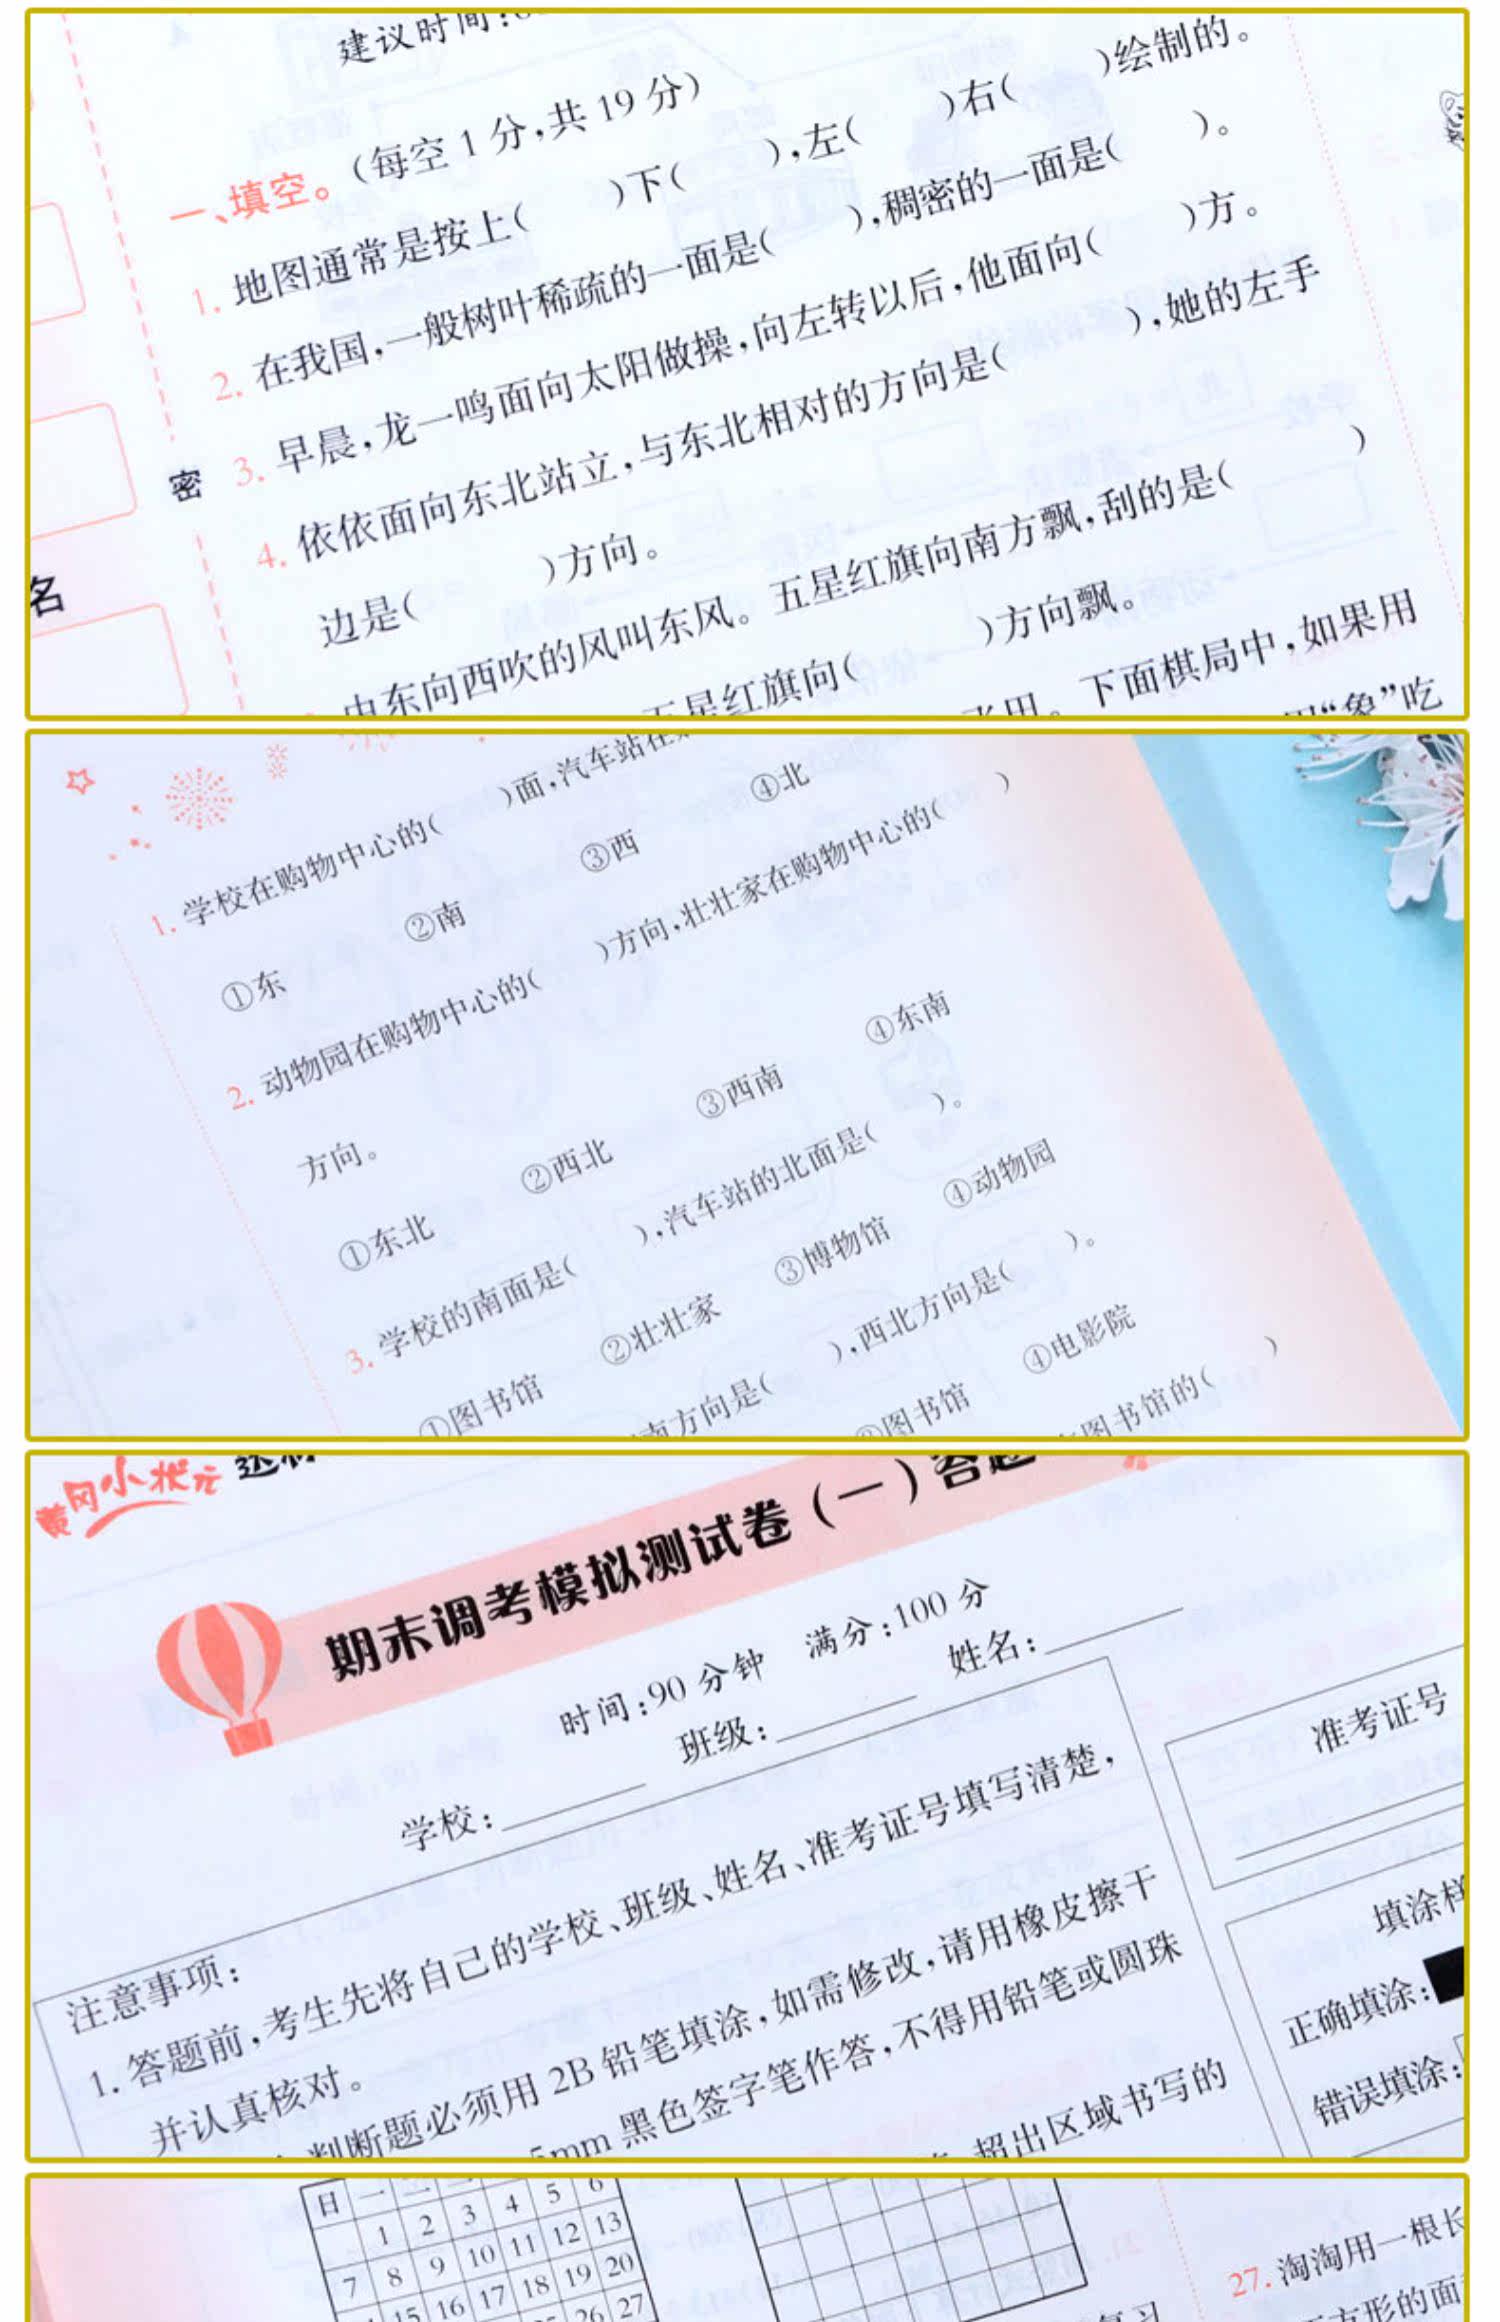 建议时间:
一、填空。(每空1分,共19分)
1. 地图通常是按上( )下( ),左( )右( )绘制的。
2. 在我国,一般树叶稀疏的一面是( ),稠密的一面是( )。
3. 早晨,龙一鸣面向太阳做操,向左转以后,他面向( )方。
4. 依依面向东北站立,与东北相对的方向是( ),她的左手
边是( )方向。
由东向西吹的风叫东风。五星红旗向南方飘,刮的是( )
五星红旗向( )方向飘。
下面棋局中,如果用
用“象”吃
密
名
1. 学校在购物中心的( )面,汽车站在
①东 ②南 ③西 ④北
2. 动物园在购物中心的( )方向,壮壮家在购物中心的( )
方向。
①东北 ②西北 ③西南 ④东南
3. 学校的南面是( ),汽车站的北面是( )。
①图书馆 ②壮壮家 ③博物馆 ④动物园
南方向是( ),西北方向是( )。
图书馆 ④电影院
图书馆的( )
黄冈小状元
期末调考模拟测试卷(一)答题
时间:90分钟 满分:100分
学校: 班级: 姓名:
注意事项:
1. 答题前,考生先将自己的学校、班级、姓名、准考证号填写清楚,
并认真核对。
判断题必须用2B铅笔填涂,如需修改,请用橡皮擦干
5mm黑色签字笔作答,不得用铅笔或圆珠
超出区域书写的
准考证号
填涂样
正确填涂:
错误填涂:
日 一 二
1 2 3 4 5 6
7 8 9 10 11 12 13
15 16 17 18 19 20
26 27
27. 淘淘用一根长
方形的面